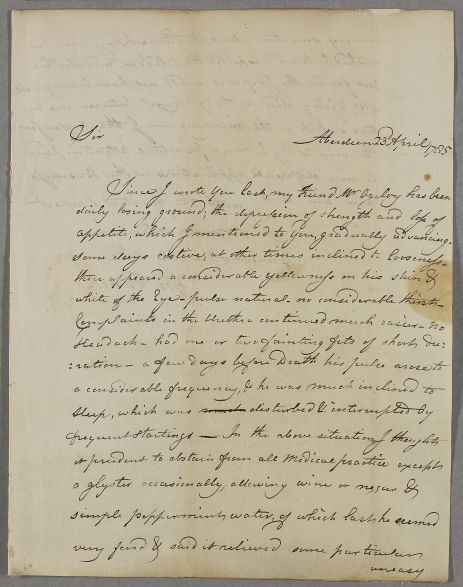 Sir
Aberdeen 23d April 1785
Since I wrote You last, my friend Mr Ogilvy has been
daily losing ground; the depression of strength and loss of
appetite, which I mentioned to You, gradually advancing.
some days costive, at other times inclined to looseness.
there appeared a considerable Yellowness on his skin &
white of the Eye - pulse natural - no considerable thirst -
Complaints in the Urethra continued much easier - No
Headach - had one or two fainting fits of short du:
:ration - a few days before Death his pulse arose to
a considerable frequency, & he was much inclined to
sleep, which was much disturbed & interrupted by
frequent startings — In the above situation I thought
it prudent to abstain from all Medical practice except
a glyster occasionally, allowing wine or negus &
simple peppermint water, of which last he seemed
very fond & said it relieved some particular
uneasy